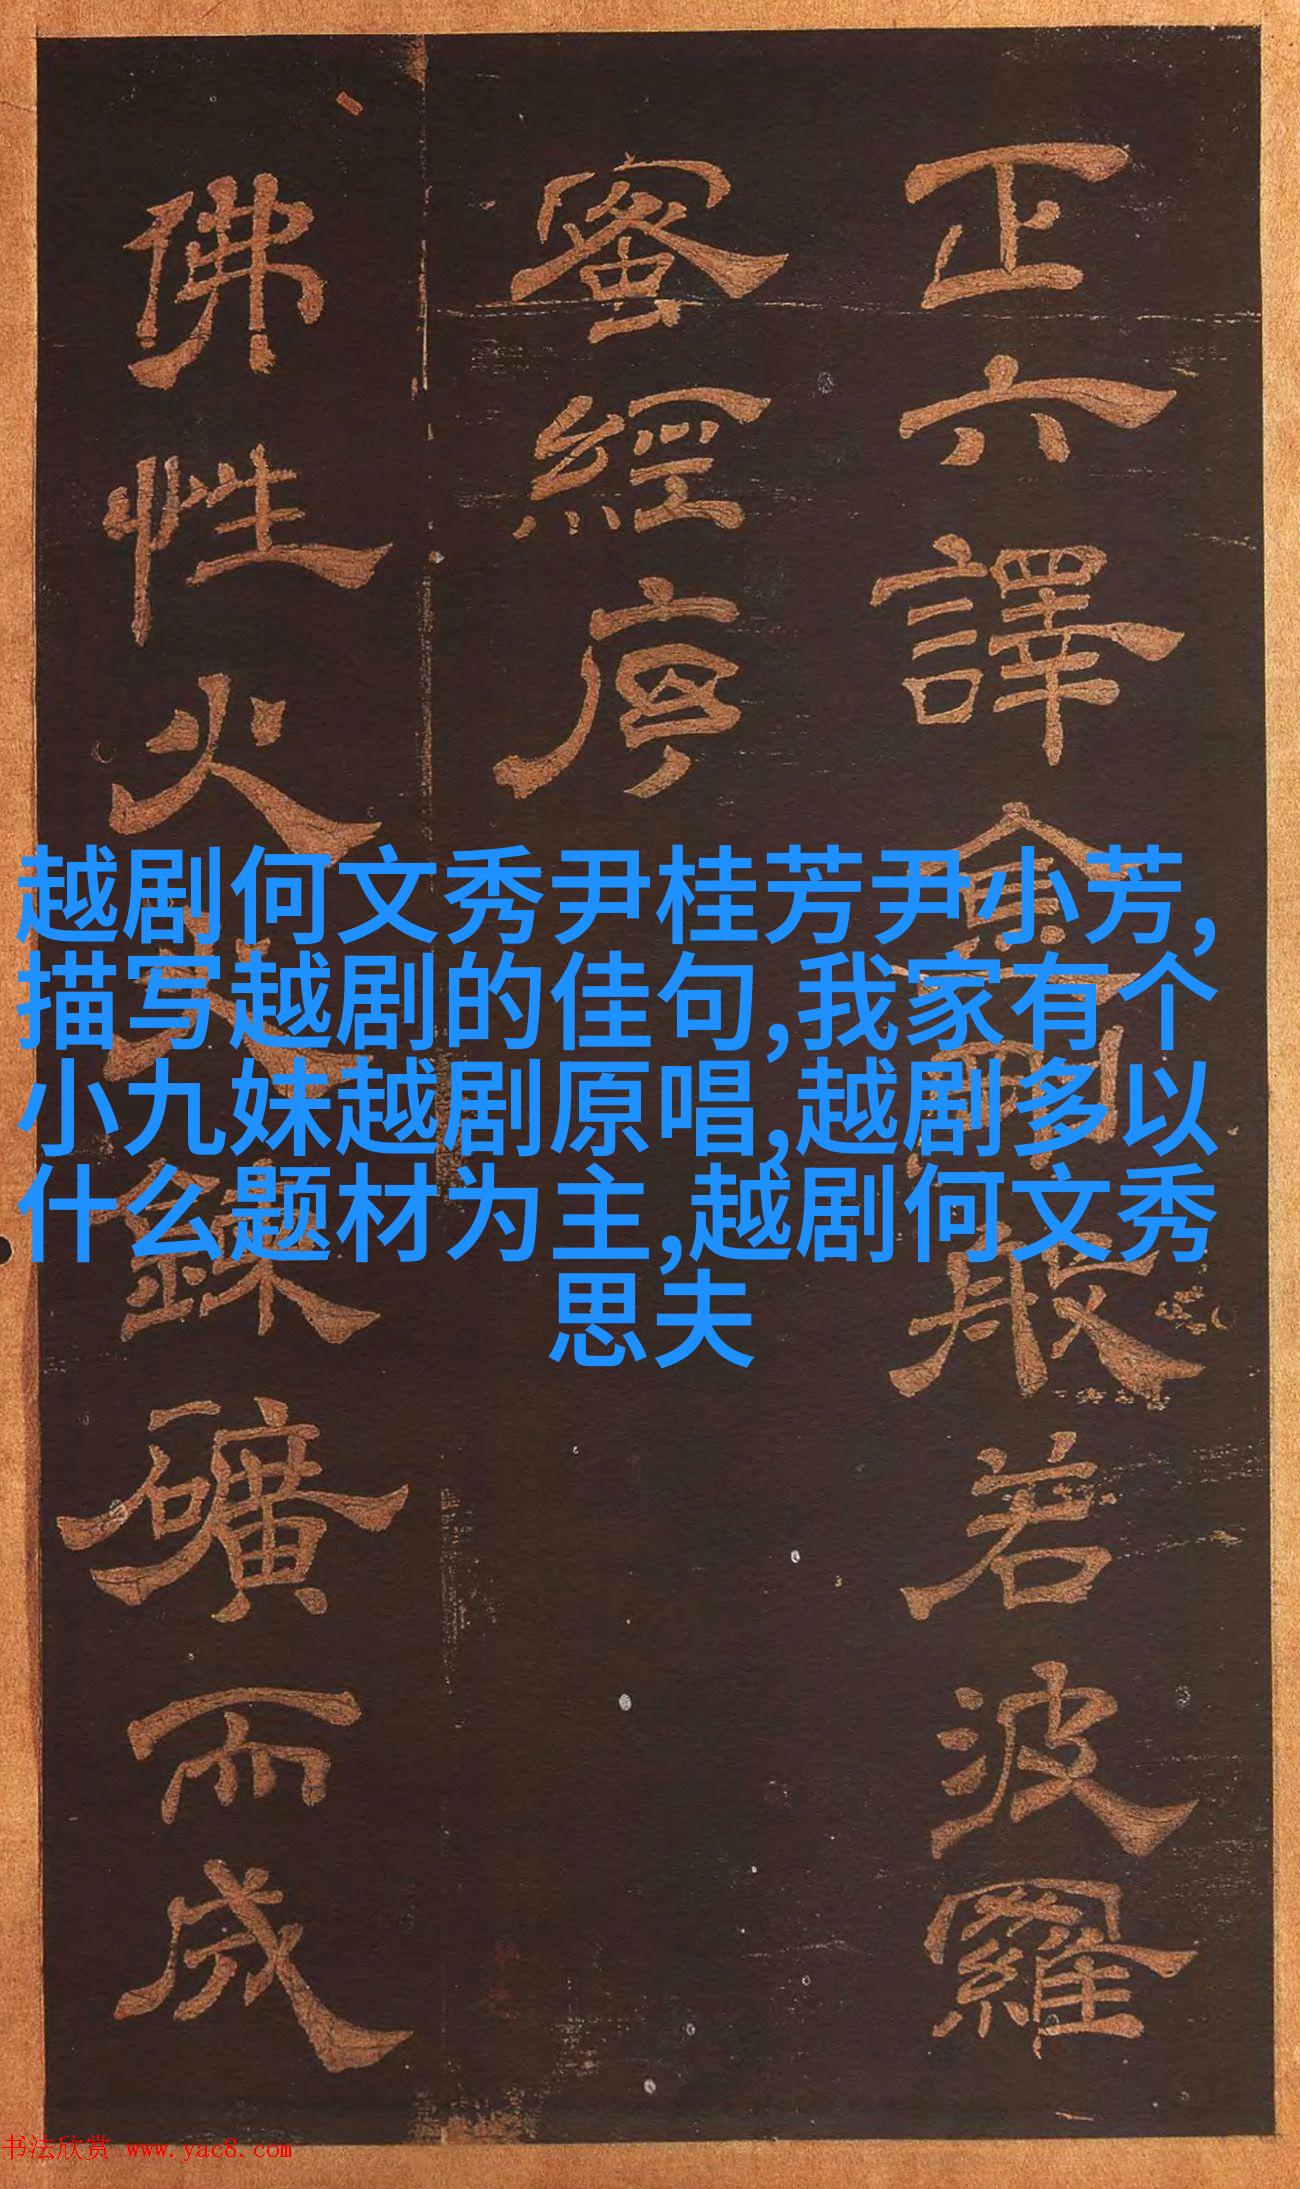 越剧何文秀尹桂芳尹小芳,
描写越剧的佳句,我家有个
小九妹越剧原唱,越剧多以
什么题材为主,越剧何文秀
思夫
正六譯金剛般若波羅
蜜經序
佛性火大錬礦而成
书法欣赏 www.yac8.com